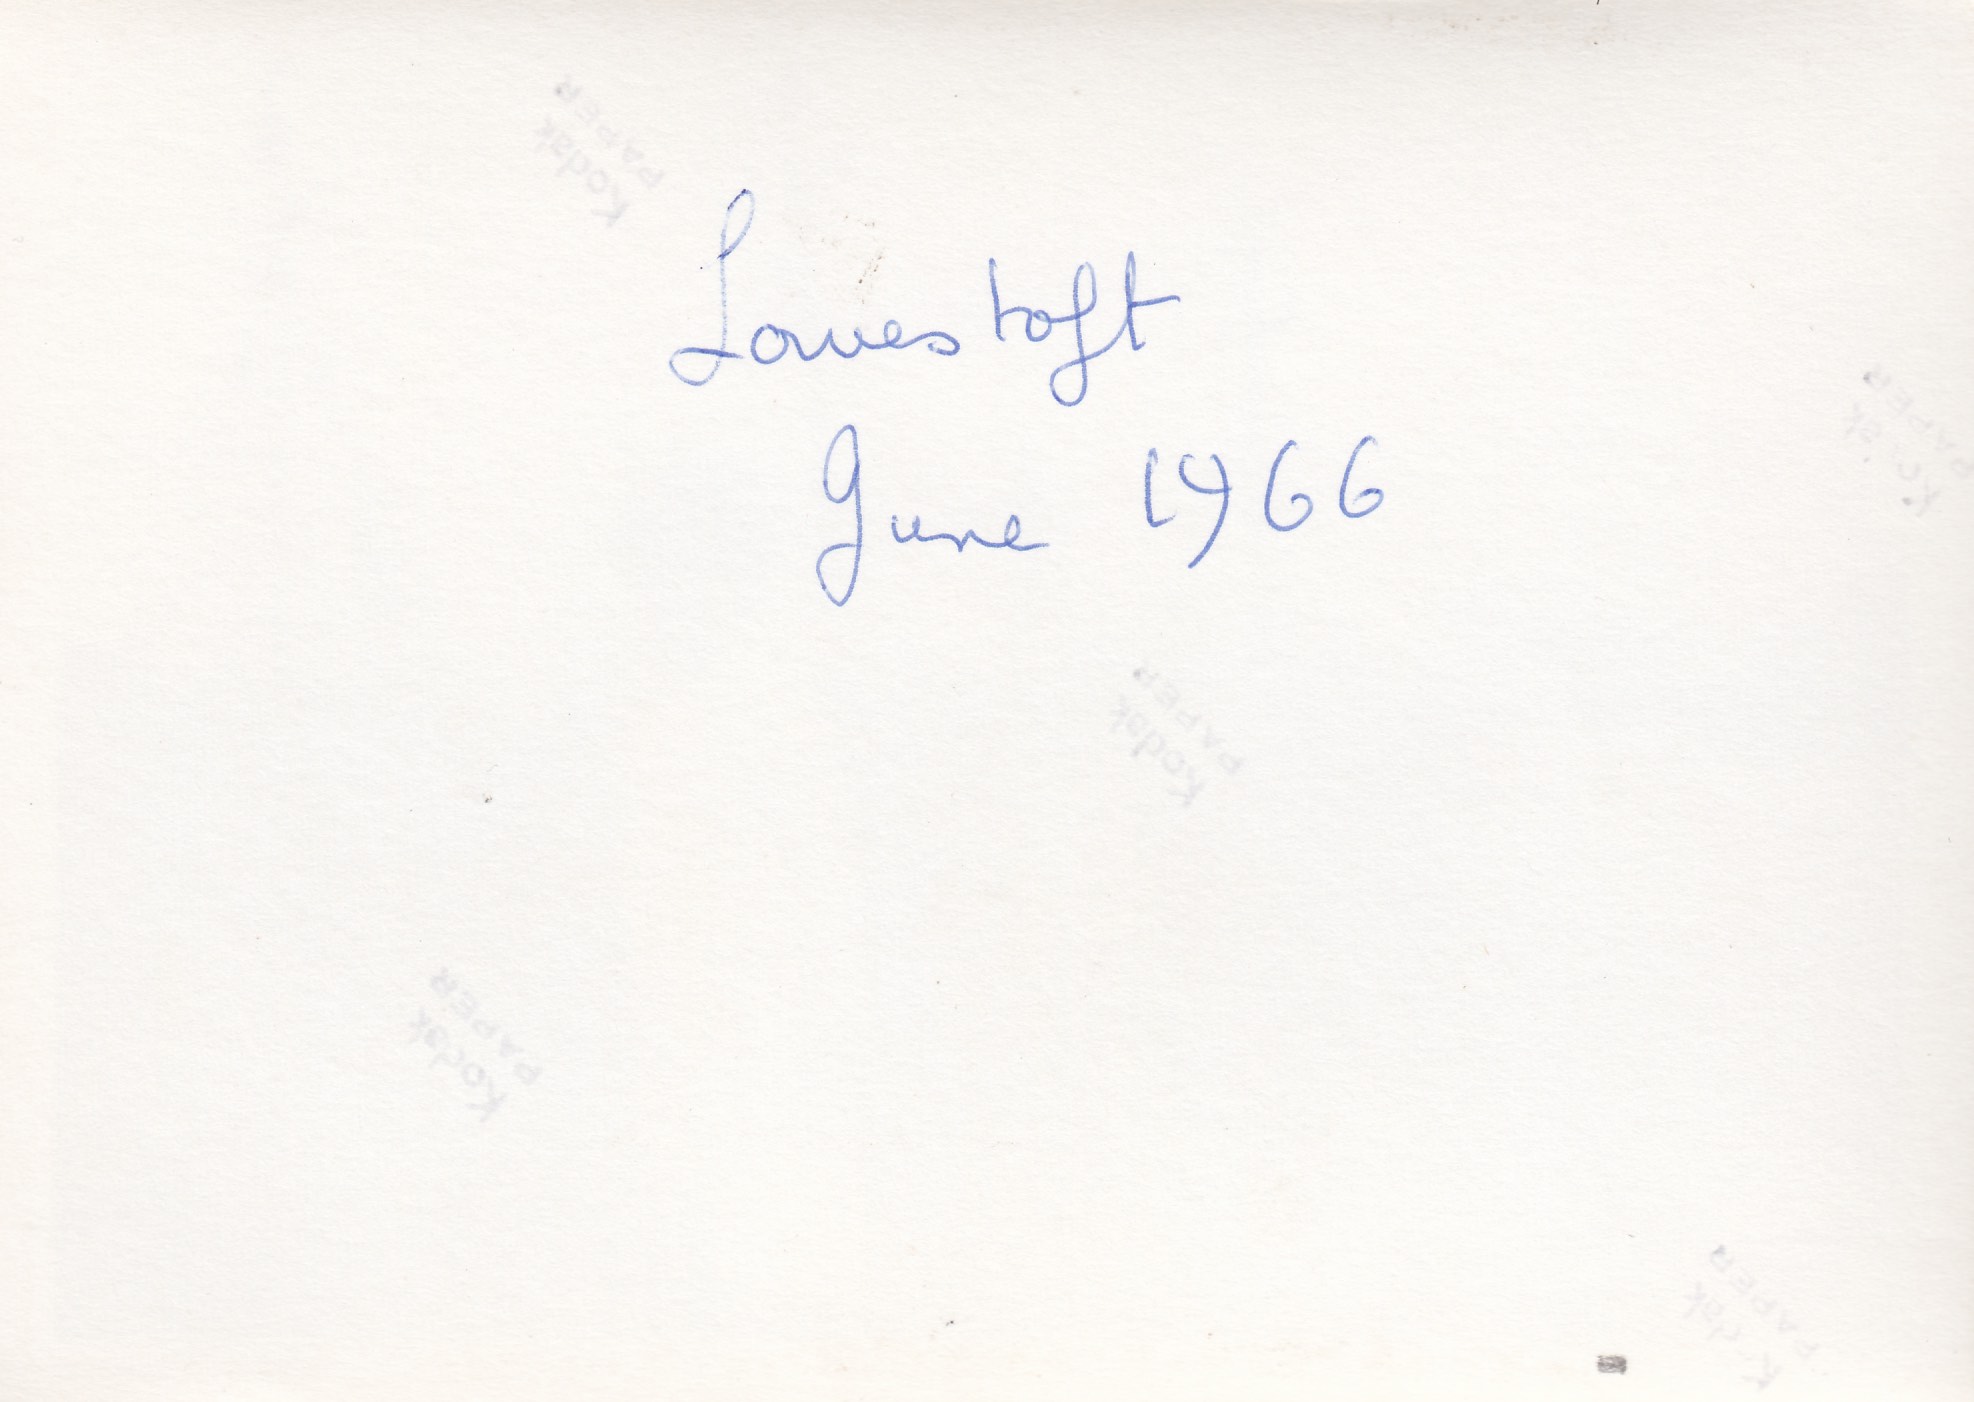 Kodak
PAPER
Lowestoft
June 1966
Kodak
PAPER
Kodak
PAPER
Kodak
PAPER
Kodak
PAPER